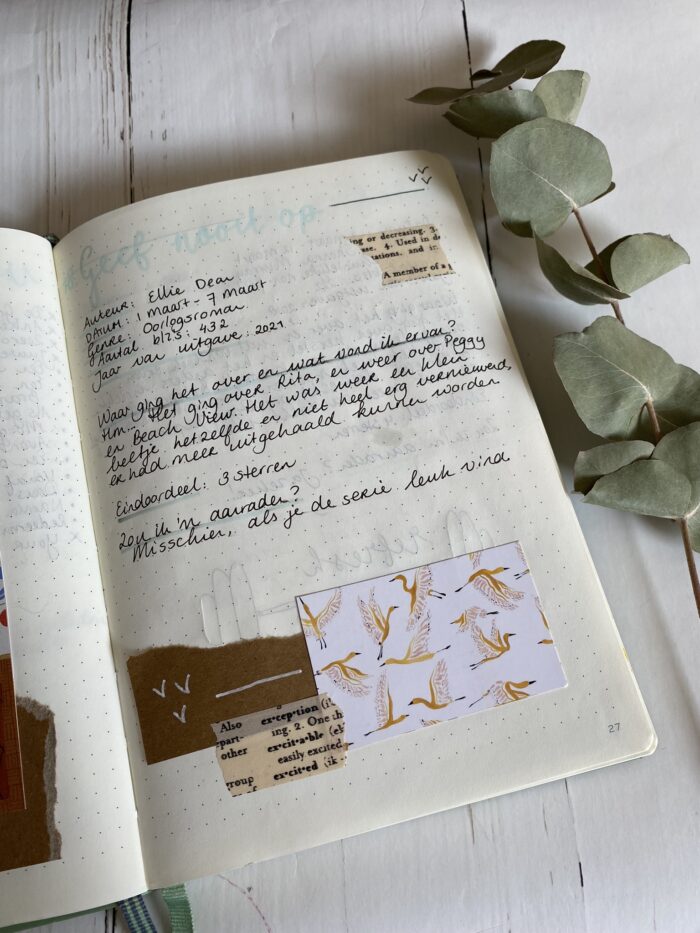 Geef nooit op
ng or decreasing. 3.
ase. 4. Used in d
tations, and in
A member of a
Auteur: Ellie Dean
Datum: 1 maart - 7 maart
Genre: Oorlogsroman
Aantal blz's: 432
Jaar van uitgave: 2021
Waar ging het over en wat vond ik ervan?
Hm... Het ging over Rita, en weer over Peggy
en Beach View. Het was weer een klein
beetje hetzelfde en niet heel erg vernieuwend,
er had meer uitgehaald kunnen worden
Eindoordeel: 3 sterren
Zou ik 'm aanraden?
Misschien, als je de serie leuk vind
Also ex•cep•tion (i
part- ing. 2. One th
other ex•cit•a•ble (ek
easily excited
group ex•cit•ed (ik
27